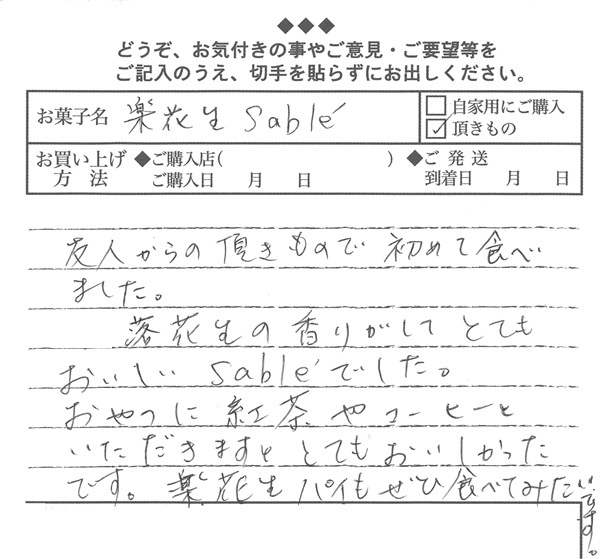 ◆◆◆
どうぞ、お気付きの事やご意見・ご要望等を
ご記入のうえ、切手を貼らずにお出しください。
お菓子名 楽花生 Sablé
□ 自家用にご購入
☑ 頂きもの
お買い上げ方法 ◆ご購入店( )
ご購入日 月 日
◆ご発送
到着日 月 日
友人からの頂きもので初めて食べ
ました。
落花生の香りがしてとても
おいしい Sabléでした。
おやつに紅茶やコーヒーと
いただきますととてもおいしかった
です。楽花生パイもぜひ食べてみたいです。